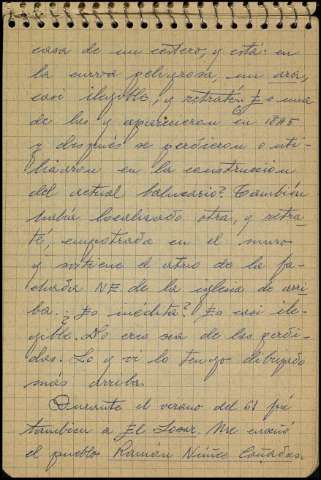 casa de un cestero, y está: en
la curva peligrosa, un ara,
casi ilegible, y retraté. Es una
de las q aparecieron en 1845
y después se perdieron o uti-
lizaron en la construccion
del actual balneario? También
había localizado otra, y retra-
té, empotrada en el muro
q sostiene el atrio de la fa-
chada NE de la iglesia de arri-
ba. ¿Es inédita? Es casi ile-
gible. No creo sea de las perdi-
das. La q vi la tengo dibujada
más arriba.
Durante el verano del 61 fui
tambien a El Lugar. Me enseñó
el pueblo Ramón Núñez Cañadas.